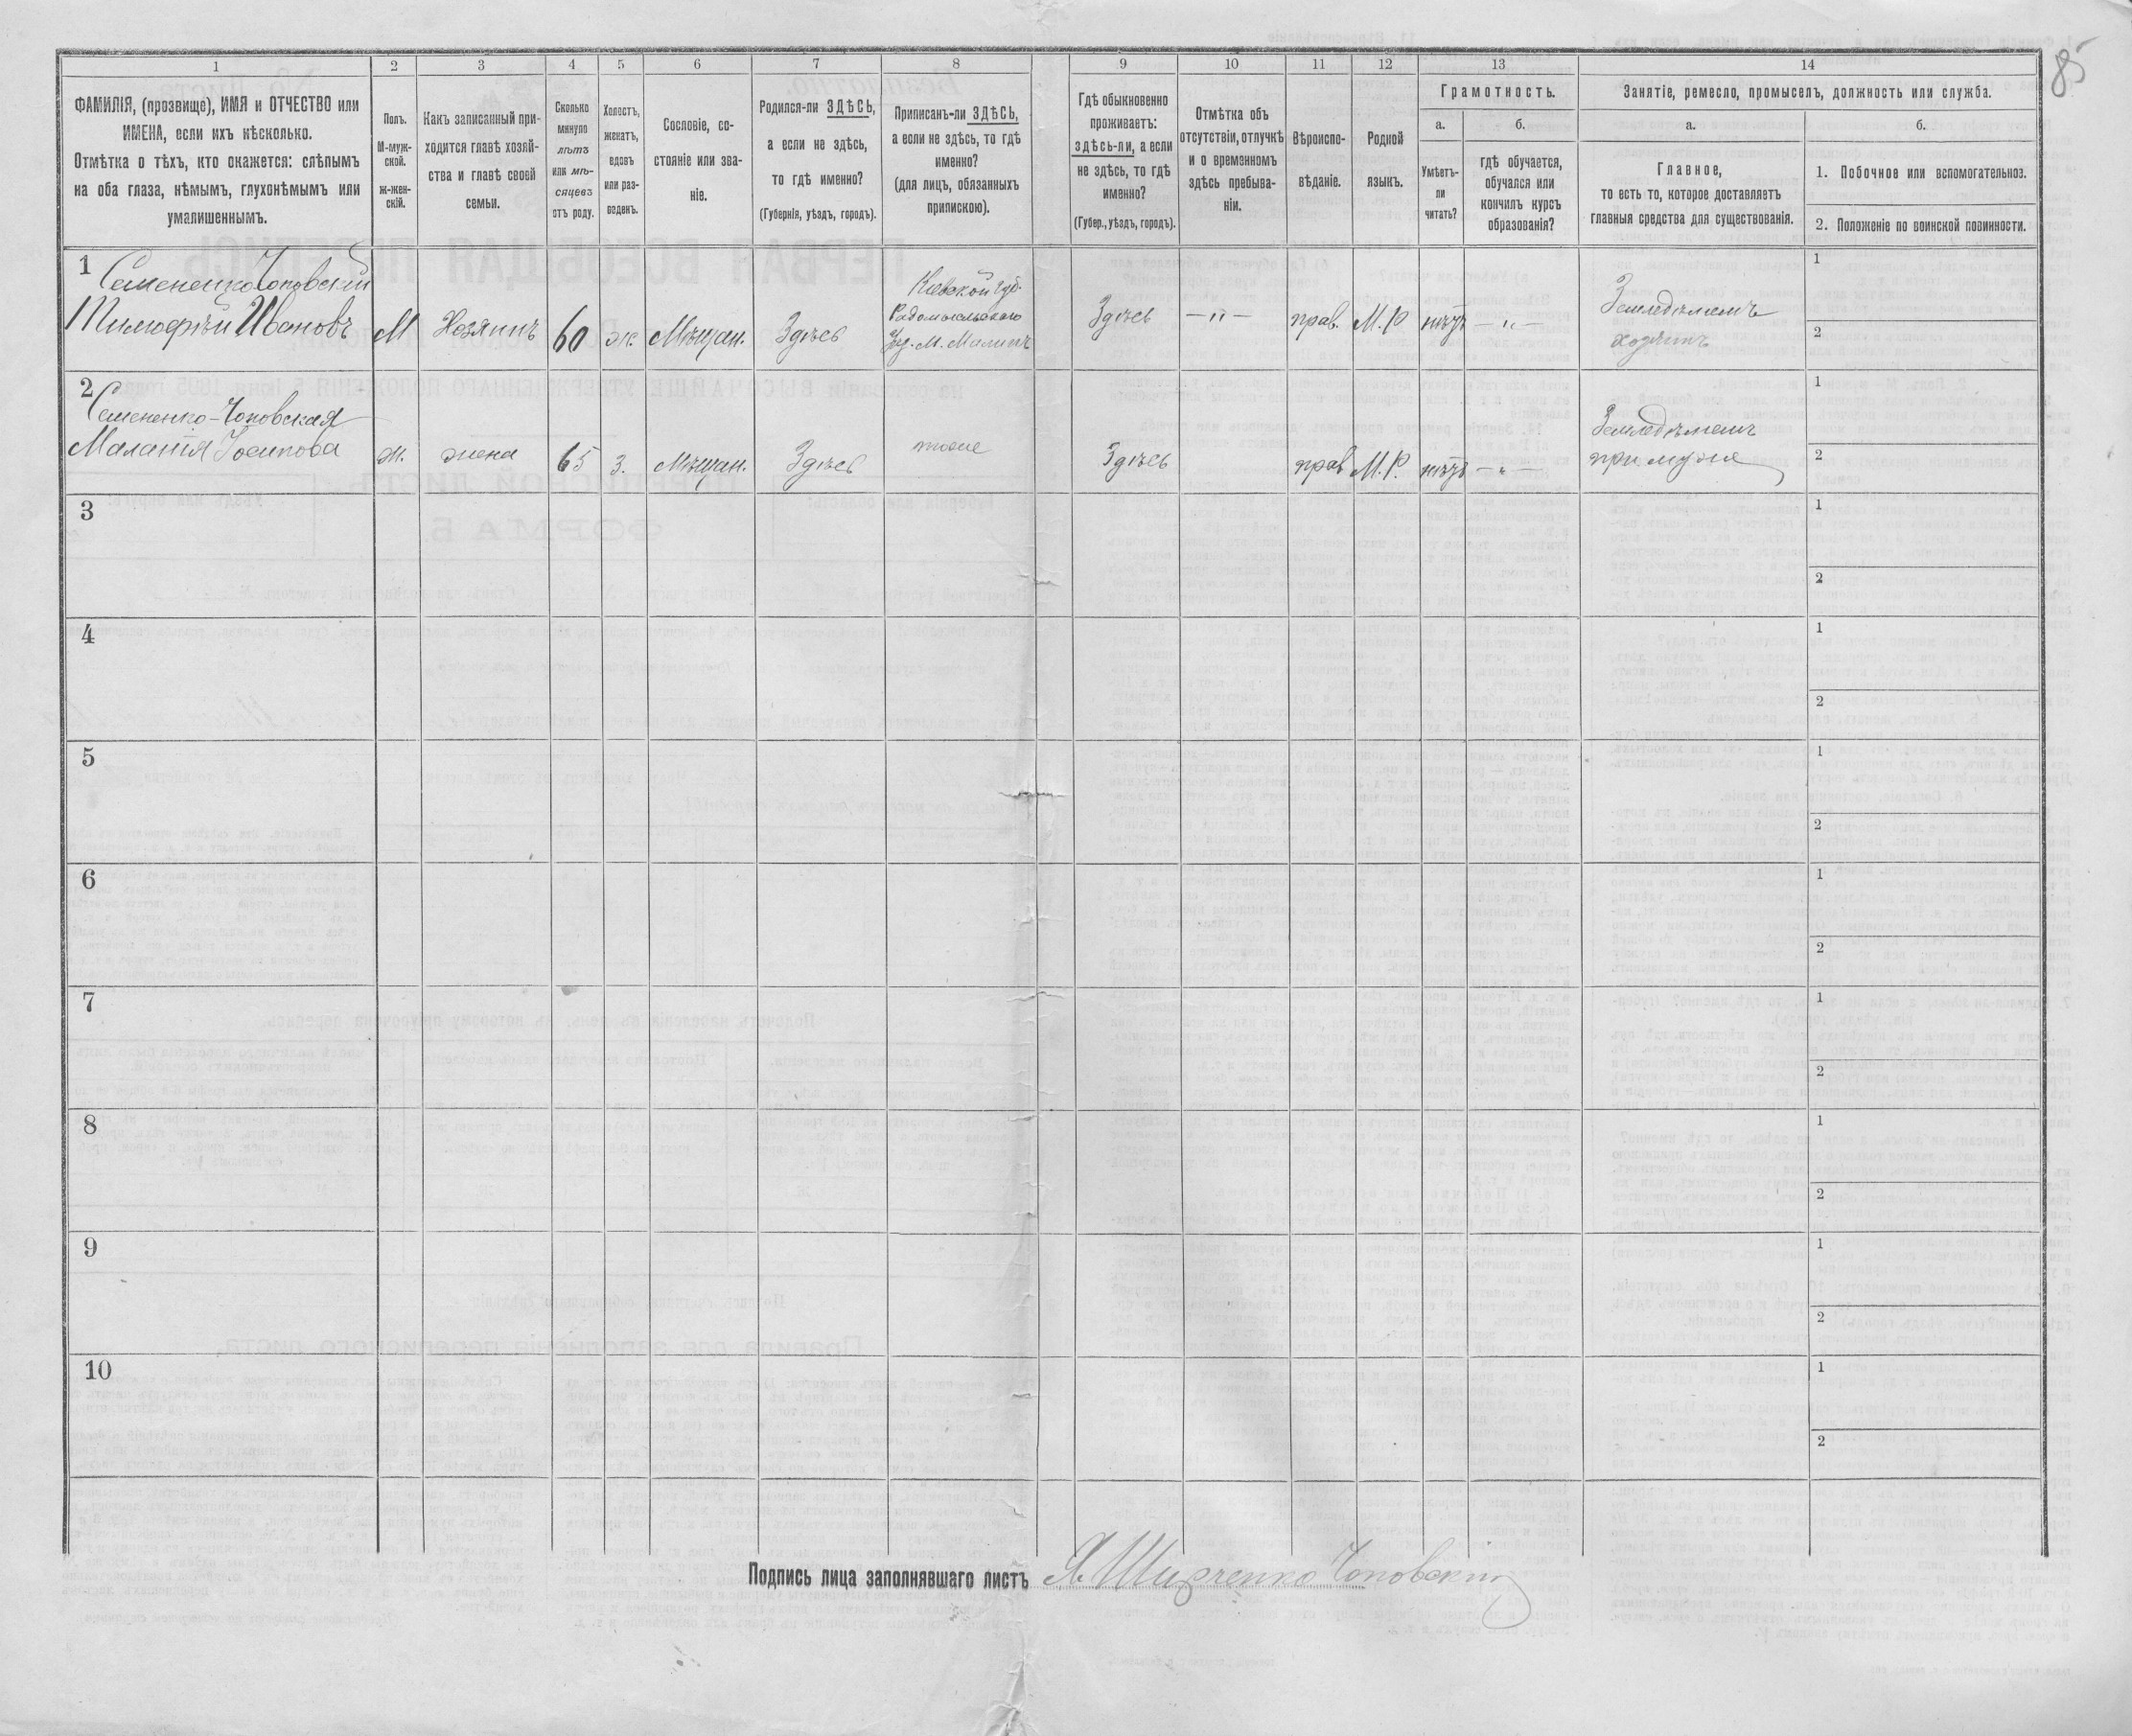 85
1 2 3 4 5 6 7 8 9 10 11 12 13 14
ФАМИЛІЯ, (прозвище), ИМЯ и ОТЧЕСТВО или
ИМЕНА, если ихъ нѣсколько.
Отмѣтка о тѣхъ, кто окажется: слѣпымъ
на оба глаза, нѣмымъ, глухонѣмымъ или
умалишеннымъ.
Полъ.
М-муж-
ской.
ж-жен-
скій.
Какъ записанный при-
ходится главѣ хозяй-
ства и главѣ своей
семьи.
Сколько
минуло
лѣтъ
или мѣ-
сяцевъ
отъ роду.
Холостъ,
женатъ,
вдовъ
или раз-
веденъ.
Сословіе, со-
стояніе или зва-
ніе.
Родился-ли ЗДѢСЬ,
а если не здѣсь,
то гдѣ именно?
(Губернія, уѣздъ, городъ).
Приписанъ-ли ЗДѢСЬ,
а если не здѣсь, то гдѣ
именно?
(для лицъ, обязанныхъ
припискою).
Гдѣ обыкновенно
проживаетъ:
здѣсь-ли, а если
не здѣсь, то гдѣ
именно?
(Губер., уѣздъ, городъ).
Отмѣтка объ
отсутствіи, отлучкѣ
и о временномъ
здѣсь пребыва-
ніи.
Вѣроиспо-
вѣданіе.
Родной
языкъ.
Грамотность.
а.
Умѣетъ-
ли
читать?
б.
гдѣ обучается,
обучался или
кончилъ курсъ
образованія?
Занятіе, ремесло, промыселъ, должность или служба.
а.
Главное,
то есть то, которое доставляетъ
главныя средства для существованія.
б.
1. Побочное или вспомогательное.
2. Положеніе по воинской повинности.
1
Семененко Чоповскій
Тимофѣй Ивановъ
М
Хозяинъ
60
ж.
Мѣщан.
Здѣсь
Кіевской губ.
Радомысльскаго
уѣз. М. Малинъ
Здѣсь
— „ —
прав.
М. Р
нѣтъ
— „ —
Земледѣлецъ
хозяинъ
1
2
2
Семененко-Чоповская
Маланія Іосипова
ж.
жена
65
З.
Мѣщан.
Здѣсь
тоже
Здѣсь
прав
М. Р.
нѣтъ
— „ —
Земледѣлецъ
при мужѣ
1
2
3
1
2
4
1
2
5
1
2
6
1
2
7
1
2
8
1
2
9
1
2
10
1
2
Подпись лица заполнявшаго листъ Чоповскій